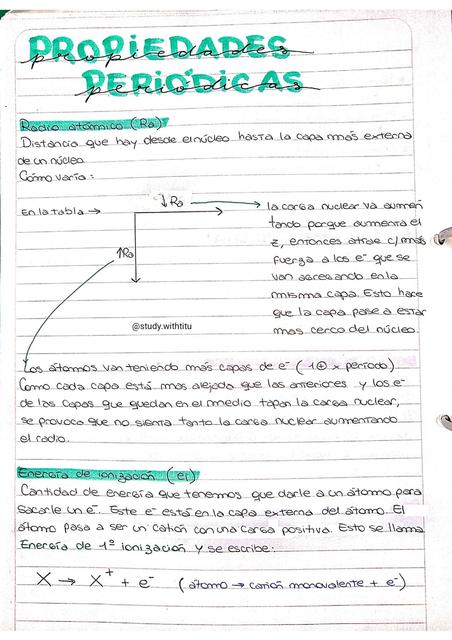 PROPIEDADES
propiedades
PERIÓDICAS
periódicas
Radio atómico (Ra)
Distancia que hay desde el núcleo hasta la capa más externa
de un núcleo
Cómo varía:
En la tabla →
↓ Ra
↑Ra
la carga nuclear va aumen
tando porque aumenta el
z, entonces atrae c/más
fuerza a los e⁻ que se
van agregando en la
misma capa. Esto hace
que la capa pase a estar
mas cerca del núcleo.
@study.withtitu
Los átomos van teniendo más capas de e⁻ (1⊕ x período)
Como cada capa está mas alejada que las anteriores y los e⁻
de las capas que quedan en el medio tapan la carga nuclear,
se provoca que no sienta tanto la carga nuclear aumentando
el radio.
Energía de ionización (ei)
Cantidad de energía que tenemos que darle a un átomo para
sacarle un e⁻. Este e⁻ está en la capa externa del átomo. El
átomo pasa a ser un catión con una carga positiva. Esto se llama
Energía de 1º ionización y se escribe:
X → X⁺ + e⁻ (átomo → catión monovalente + e⁻)